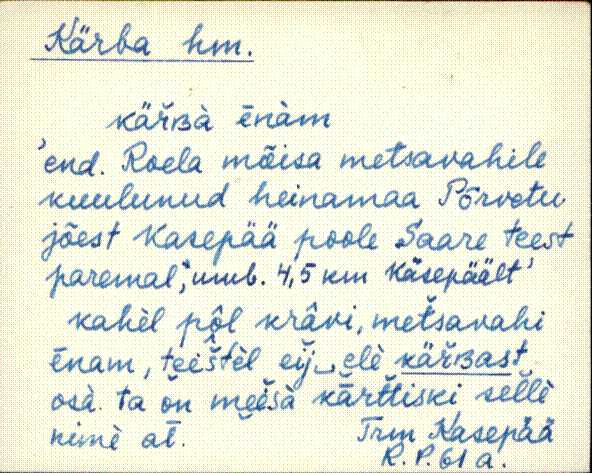 Kärba hm.
kär̆ʙà ēnàm
'end. Roela mõisa metsavahile
kuulunud heinamaa Põrvotu
jõest Kasepää poole Saare teest
paremal; umb. 4,5 km Kasepäält'
kahèl pôl krâvi, met̆savahi
ēnam, teistèl eij‿elè kär̆ʙast
osà. ta on meisà kär̆t̆t̆iski sel̆lè
nimè at̄.
Trm Kasepää
R. P. 61 a.